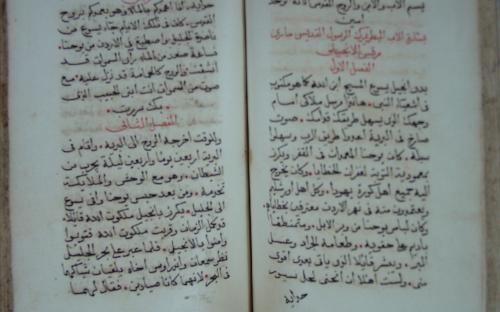 بسم الاب والابن والروح القدس الاله الواحد
امين
بشارة الاب البطريرك الرسول القديس ماري
مرقس الانجيلي
الفصل الاول
بدو انجيل يسوع المسيح ابن الله كما هو مكتوب
في اشعيا النبي هانذا مرسل ملاكي امام
وجهك الذي يسهل طريقك قدامك صوت
صارخ في البرية اعدوا طريق الرب وسهلوا
سبله كان يوحنا المعمدان في القفر ويكرز
بمعمودية التوبة لغفران الخطايا وكان يخرج
اليه جميع اهل كورة يهودا وكل اهل اورشليم
ويعتمدون منه في نهر الاردن معترفين بخطاياهم
وكان لباس يوحنا من وبر الابل ومتمنطقا
بأديم على حقويه وطعامه الجراد وعسل
البر ويبشر قائلا الذي ياتي بعدي اقوى
مني ولست اهلا ان انحني لحل سيور
حذايه
حذايه انا اعمدكم بالماء وهو يعمدكم بروح
القدس كان في تلك الايام جاء يسوع من
ناصرة الجليل واصطبغ في الاردن من يوحنا
فساعة صعد من الماء راى السموات قد
انشقت والروح كالحمامة قد نزل عليه مع
صوت من السموات انت ابني الحبيب الذي
بك سررت
الفصل الثاني
وللوقت اخرجه الروح الى البرية واقام في
البرية اربعين يوما واربعين ليلة يجرب من
الشيطان وهو مع الوحش والملايكة
تخدمه ومن بعد حبس يوحنا وافى يسوع
الى الجليل يكرز بانجيل ملكوت الله قائلا
قد كمل الزمان وقربت ملكوت الله فتوبوا
وامنوا بالانجيل فلما عبر على بحر الجليل
نظر سمعان واندراوس اخاه يلقيان شباكهما
في البحر لانهما كانا صيادين فقال لهما